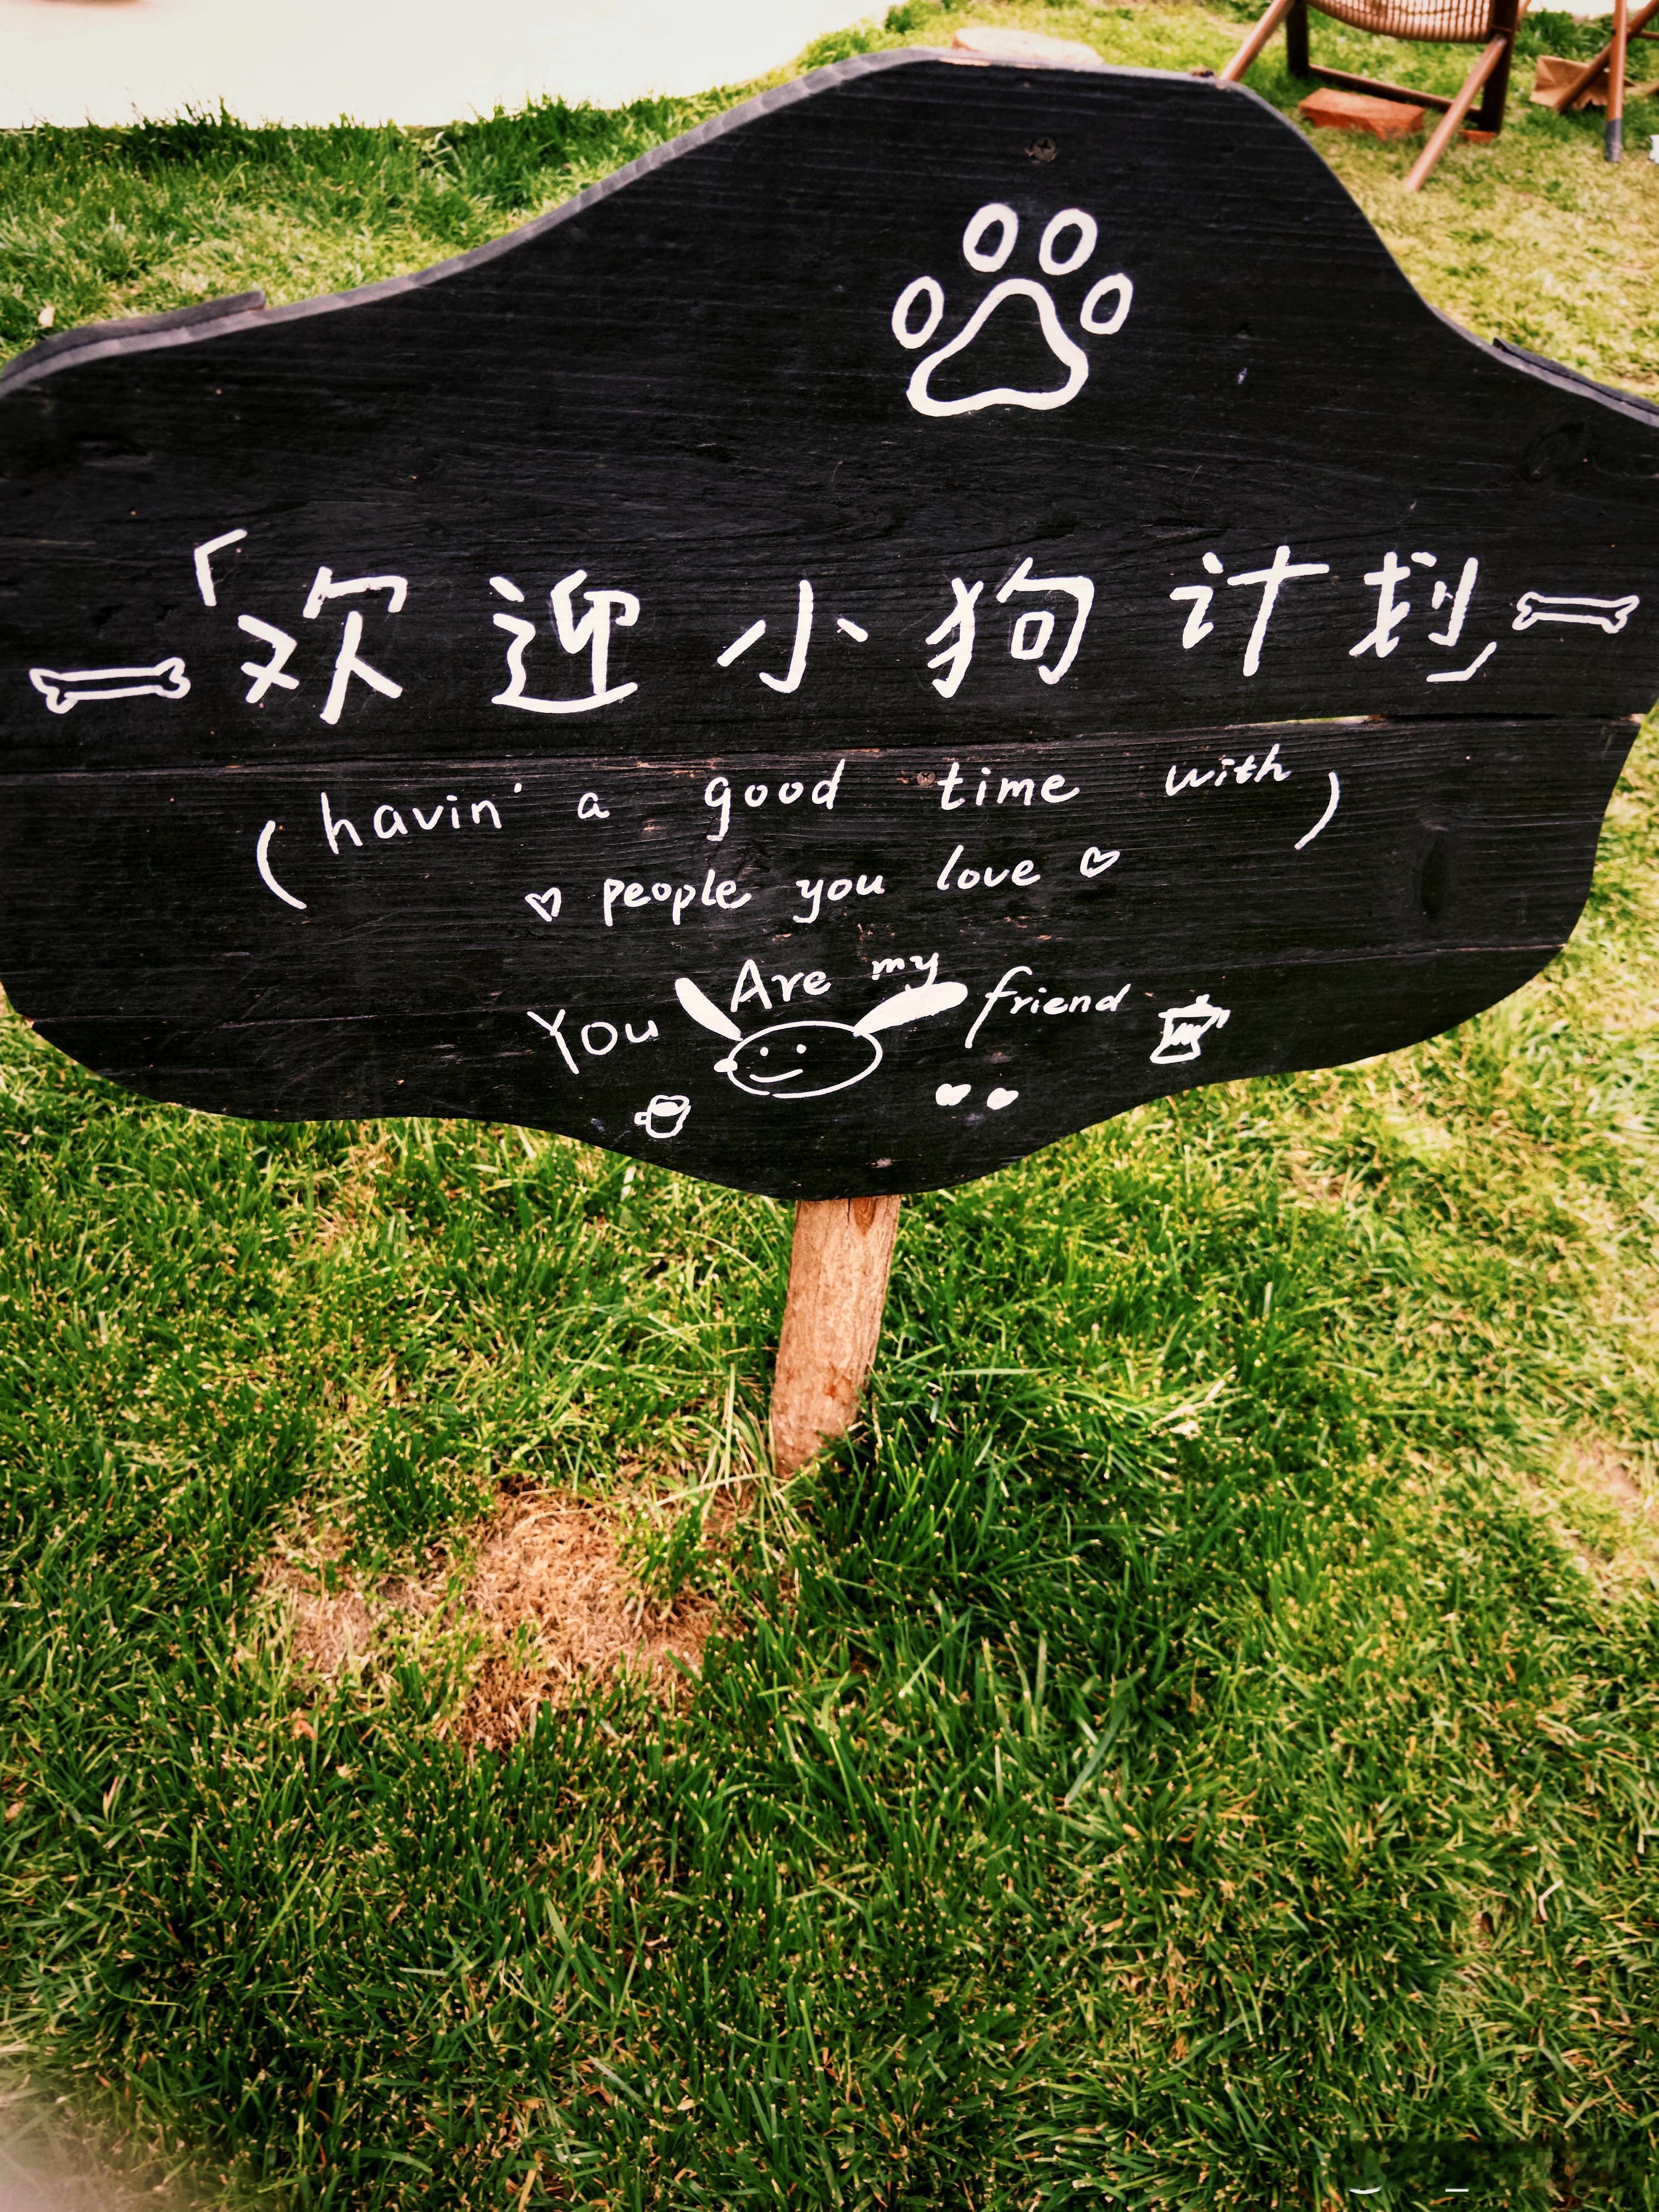 「欢迎小狗计划」
(havin' a good time with)
people you love
You Are my friend